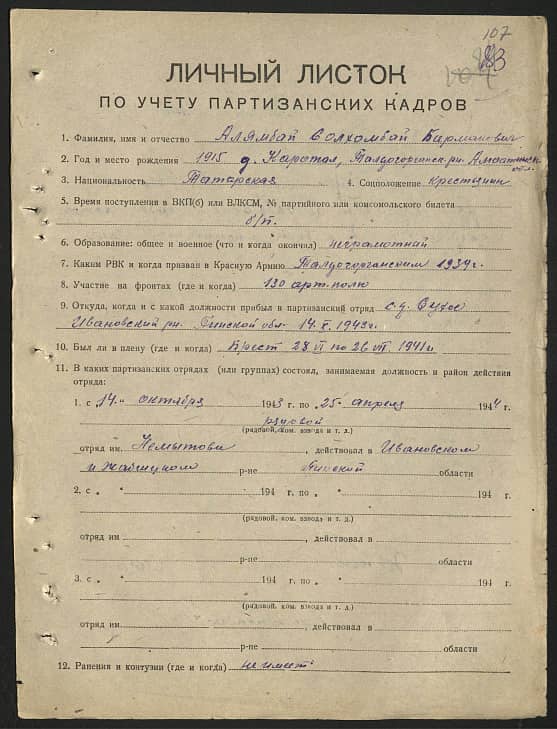 107
ЛИЧНЫЙ ЛИСТОК
ПО УЧЕТУ ПАРТИЗАНСКИХ КАДРОВ
1. Фамилия, имя и отчество Алямбай Солхомбай Барманович
2. Год и место рождения 1915 д. Каратал, Талдогоргинск. рн. Алмаатинск.
обл.
3. Национальность Татарская 4. Соцположение крестьянин
5. Время поступления в ВКП(б) или ВЛКСМ, № партийного или комсомольского билета
б/п.
6. Образование: общее и военное (что и когда окончил) неграмотный
7. Каким РВК и когда призван в Красную Армию Талдогорганским 1939г.
8. Участие на фронтах (где и когда) 130 арт. полк
9. Откуда, когда и с какой должности прибыл в партизанский отряд с. д. Сухое
Ивановский рн. Пинской обл. 14.X.1943г.
10. Был ли в плену (где и когда) Брест 28 VI по 26 VII 1941г
11. В каких партизанских отрядах (или группах) состоял, занимаемая должность и район действия
отряда:
1. с „14" октября 1943 г. по „25" апреля 1944 г.
рядовой
(рядовой, ком. взвода и т. д.)
отряд им. Немытова, действовал в Ивановском
и Жабчицком р-не Пинской области
2. с „ " 194 г. по „ " 194 г.
(рядовой, ком. взвода и т. д.)
отряд им , действовал в
р-не области
3. с „ " 194 г. по „ " 194 г.
(рядовой, ком. взвода и т. д.)
отряд им , действовал в
р-не области
12. Ранения и контузии (где и когда) не имеет